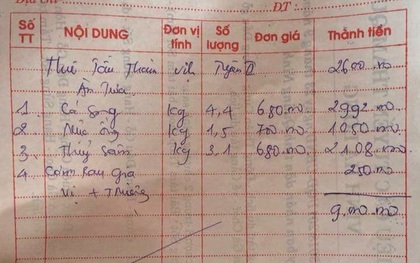 ĐT :
Số TT NỘI DUNG Đơn vị tính Số lượng Đơn giá Thành tiền
Thuê Tàu Tham Vịnh Tuyến II 2600.000
Ăn Trưa
1. Cá Song kg 4,4 680.000 2992.000
2 Mực ống kg 1,5 700.000 1050.000
3 Thuỷ Sâm kg 3,1 680.000 2108.000
4 Cơm Rau Gia 250.000
Vị +
9.000.000